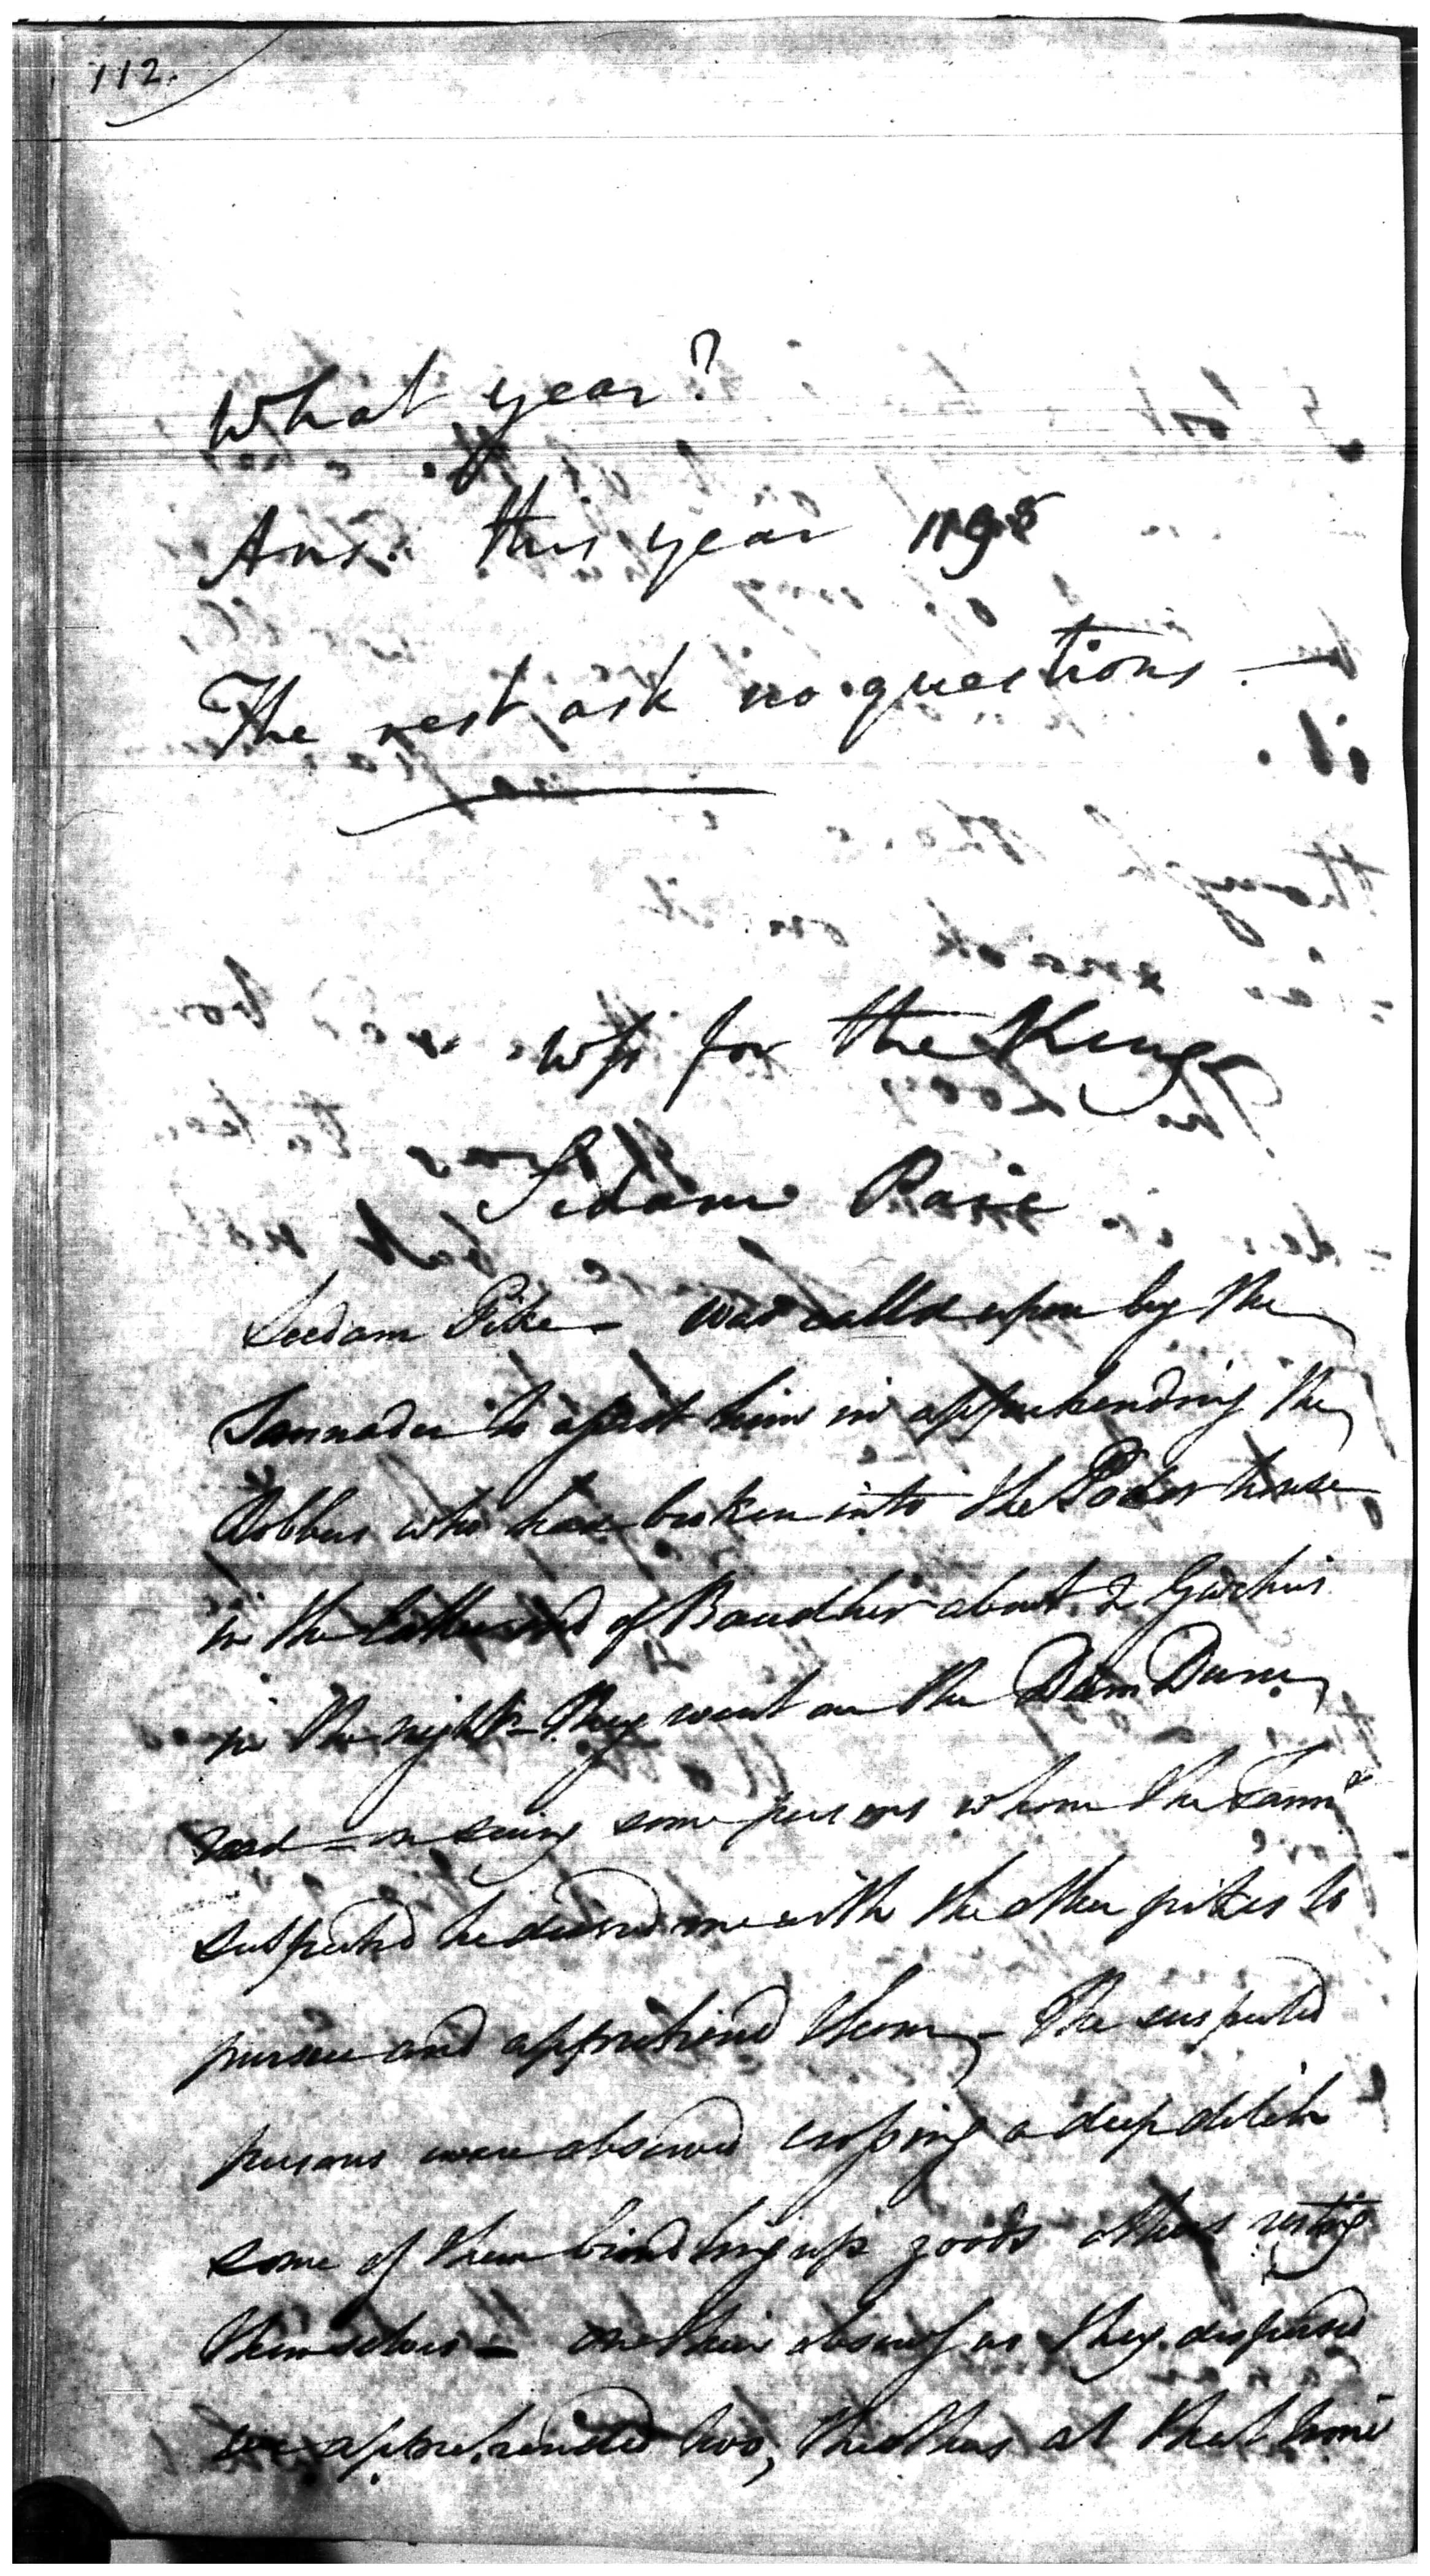 112.
What year?
Ans. this year 1195
The rest ask no questions —
Wss for the King
Sedam Paik
Seedam Pike — was called upon by the
Jannadar to assist him in apprehending the
Robbers who had broken into the house
in the latter end of Baudher about 2 Gurhis
in the night — They went on the Dum Dum
road — on seeing some persons whom the Jannr
suspected he desired me with the other pikes to
pursue and apprehend them — The suspected
persons were observed crossing a deep ditch
some of them bundling up goods others resting
themselves — on their observg us they dispersed
we apprehended two, the others at that time